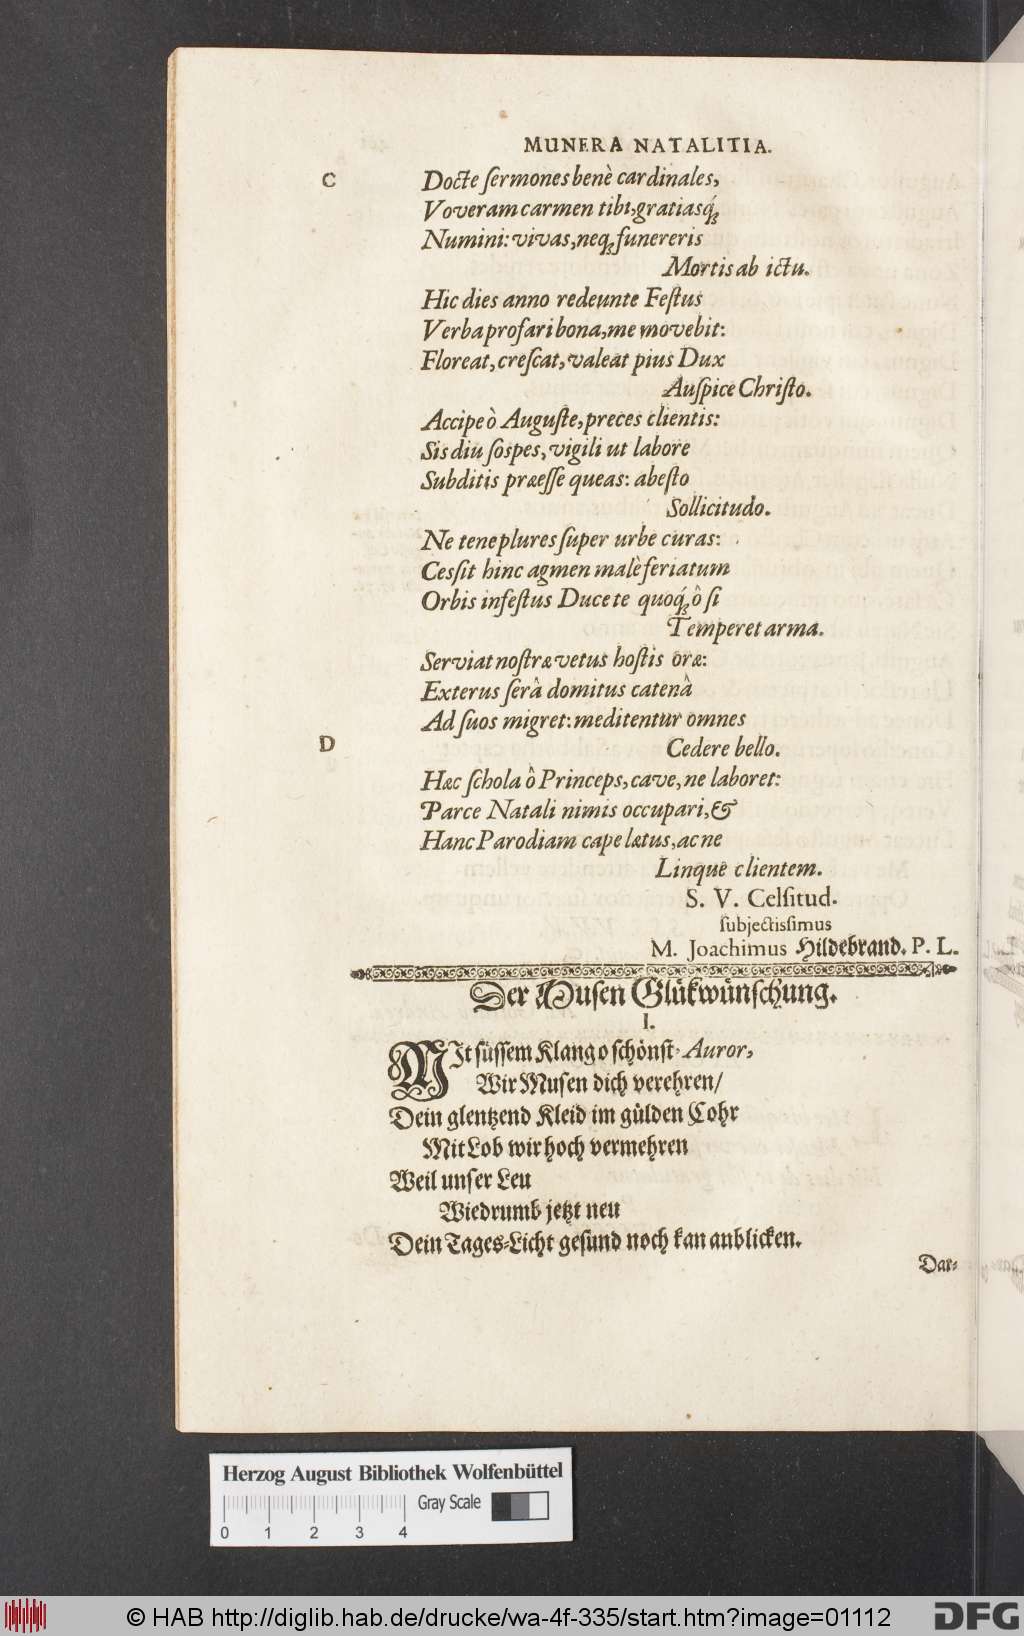 MUNERA NATALITIA.
C Docte ſermones benè cardinales,
Voveram carmen tibi, gratiasq́;
Numini: vivas, neq; funereris
Mortis ab ictu.
Hic dies anno redeunte Feſtus
Verba profari bona, me movebit:
Floreat, creſcat, valeat pius Dux
Auſpice Chriſto.
Accipe ò Auguſte, preces clientis:
Sis diu ſospes, vigili ut labore
Subditis præeſſe queas: abeſto
Sollicitudo.
Ne tene plures ſuper urbe curas:
Ceſsit hinc agmen malè feriatum
Orbis infeſtus Duce te quoq́; ô ſi
Temperet arma.
Serviat noſtræ vetus hoſtis oræ:
Exterus ſerâ domitus catenâ
Ad ſuos migret: meditentur omnes
D Cedere bello.
Hæc ſchola ô Princeps, cave, ne laboret:
Parce Natali nimis occupari, &
Hanc Parodiam cape lætus, ac ne
Linque clientem.
S. V. Celſitud.
ſubjectiſsimus
M. Joachimus Hildebrand. P. L.
Der Muſen Glükwünſchung.
I.
MIt ſüſſem Klang o ſchönſt- Auror,
Wir Muſen dich verehren/
Dein glentzend Kleid im gülden Cohr
Mit Lob wir hoch vermehren
Weil unſer Leu
Wiedrumb jetzt neu
Dein Tages-Licht geſund noch kan anblicken.
Dar-
Herzog August Bibliothek Wolfenbüttel
Gray Scale
0 1 2 3 4
© HAB http://diglib.hab.de/drucke/wa-4f-335/start.htm?image=01112
DFG